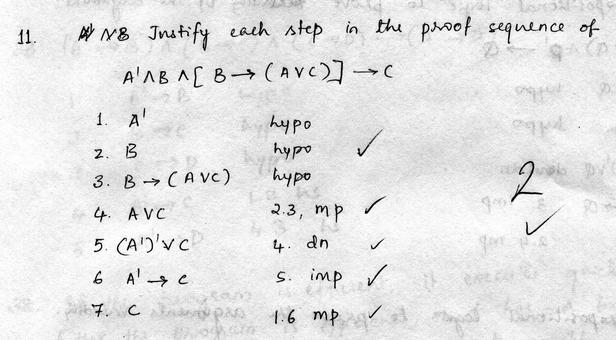 11. A'∧B Justify each step in the proof sequence of
A'∧B∧[B→(A∨C)]→C
1. A' hypo
2. B hypo ✓
3. B→(A∨C) hypo
4. A∨C 2.3, mp ✓
5. (A')'∨C 4. dn ✓
6 A'→C 5. imp ✓
7. C 1.6 mp ✓
2 ✓